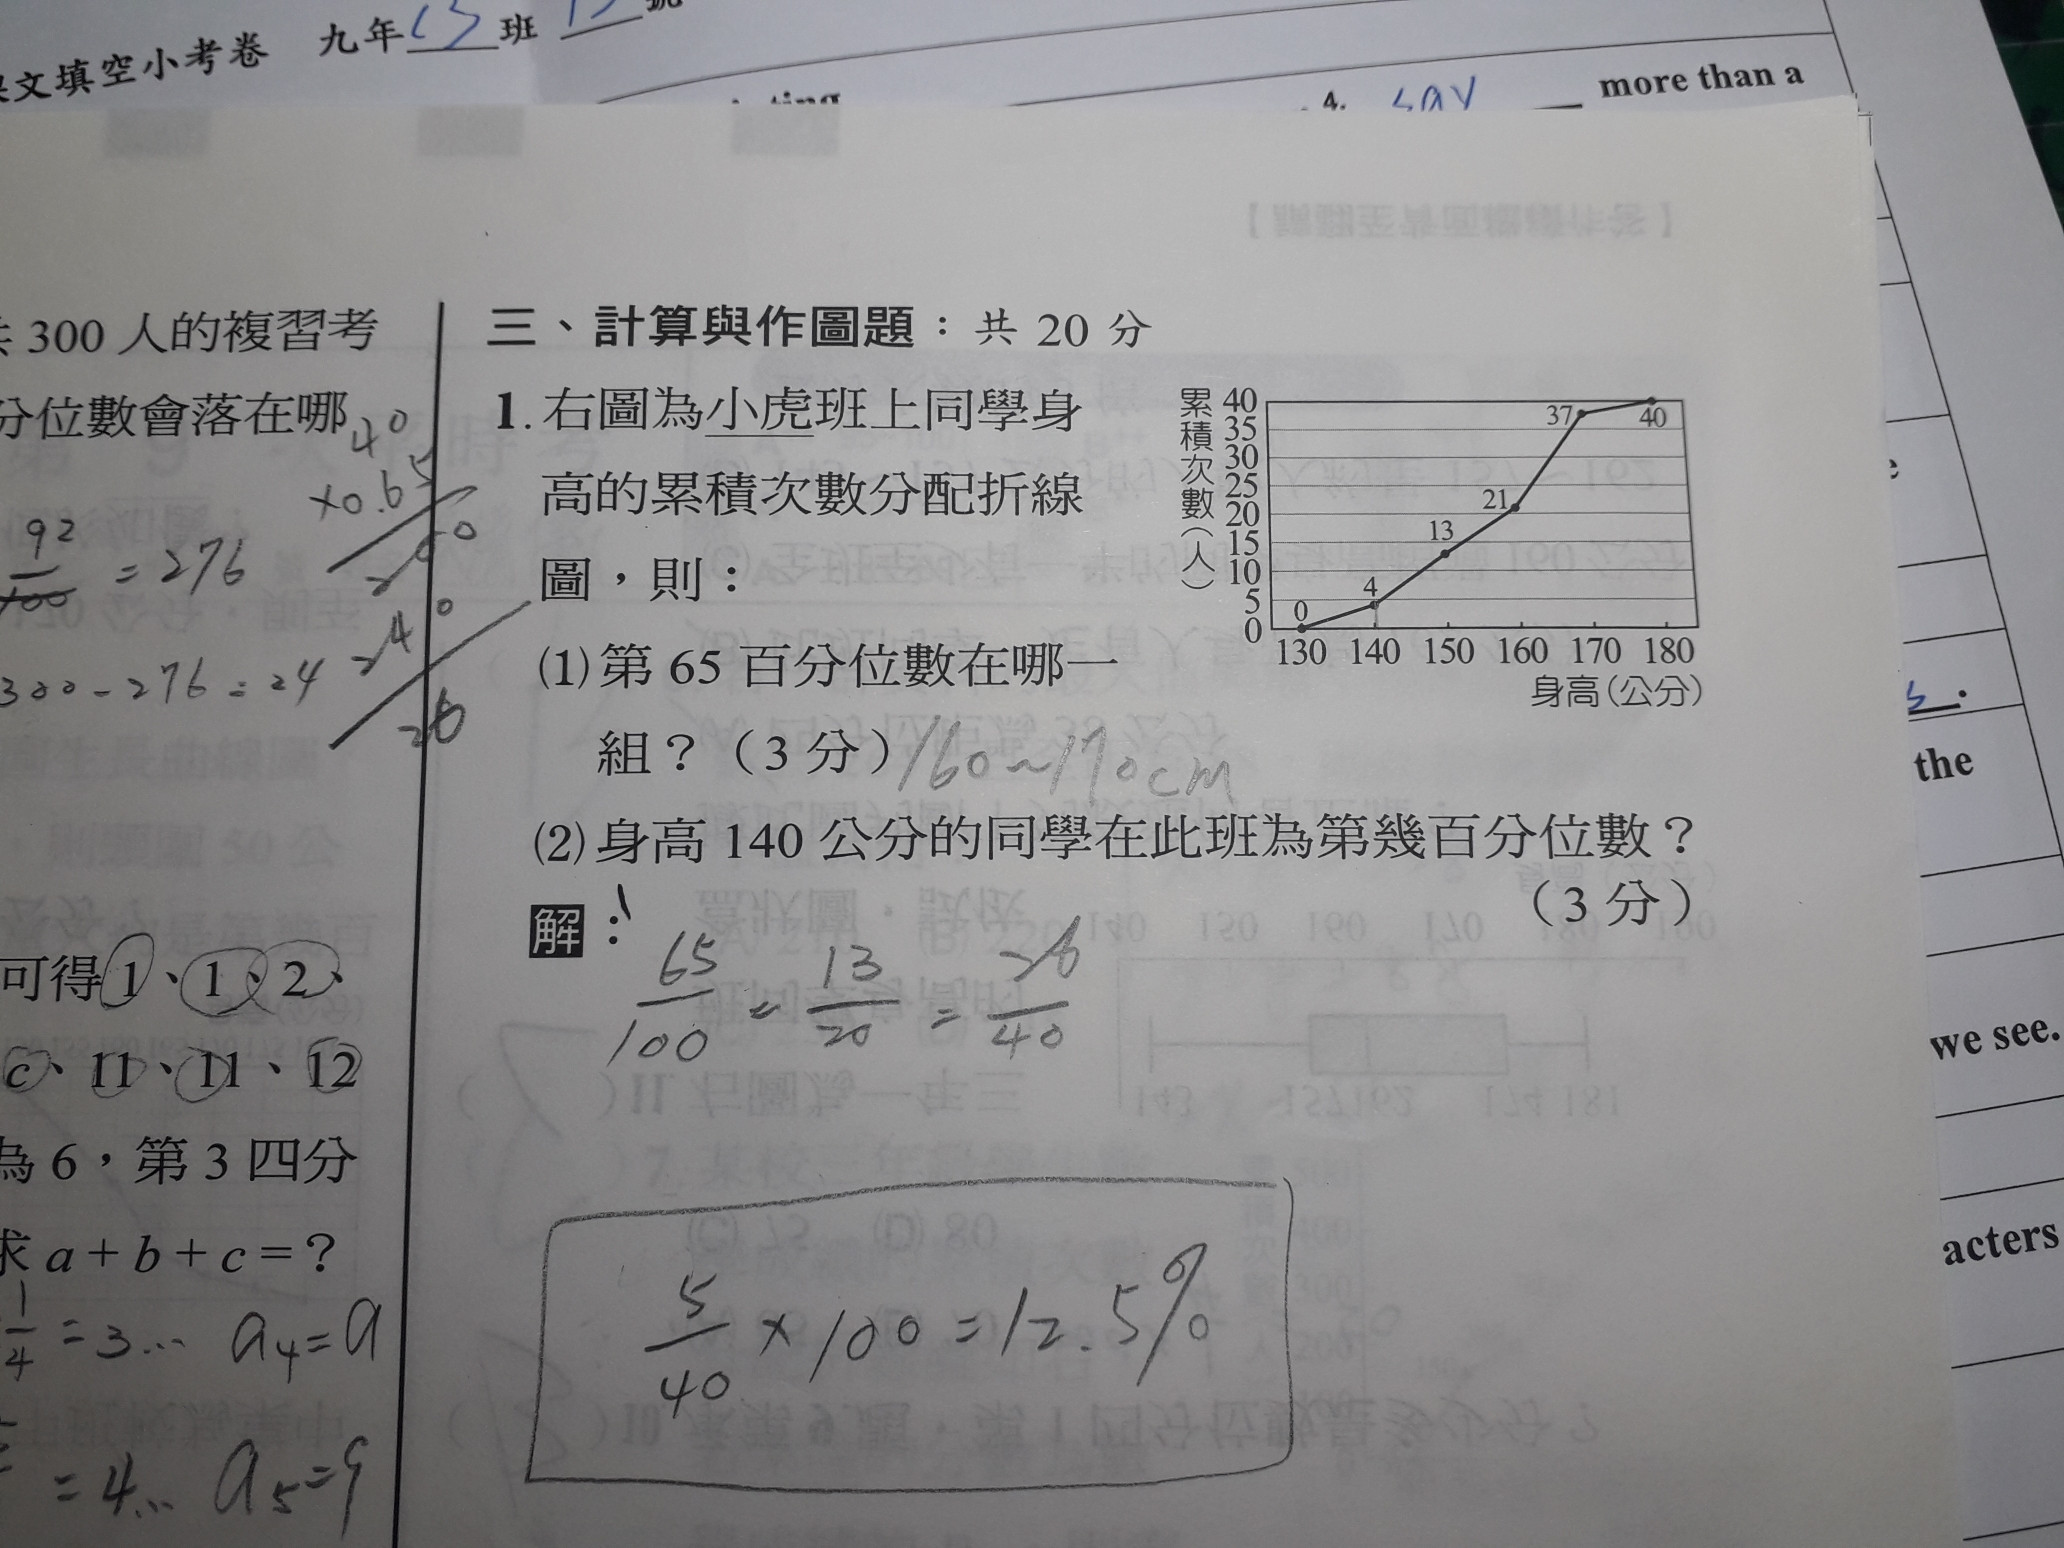 文填空小考卷 九年 13 班
4. say more than a
共 300 人的複習考
分位數會落在哪
40
×0.65
200
240
26
92
100 = 276
300 - 276 = 24
可得 1、1、2、
c、11、11、12
為 6，第 3 四分
求 a + b + c = ?
1
4 = 3... a4 = a
= 4... a5 = 9
三、計算與作圖題：共 20 分
1. 右圖為小虎班上同學身
高的累積次數分配折線
圖，則：
累積次數（人）
40
35
30
25
20
15
10
5
0
0
4
13
21
37
40
130 140 150 160 170 180
身高(公分)
(1) 第 65 百分位數在哪一
組？（3 分） 160~170cm
(2) 身高 140 公分的同學在此班為第幾百分位數？
（3 分）
解：
65/100 = 13/20 = 26/40
5/40 × 100 = 12.5%
the
we see.
acters